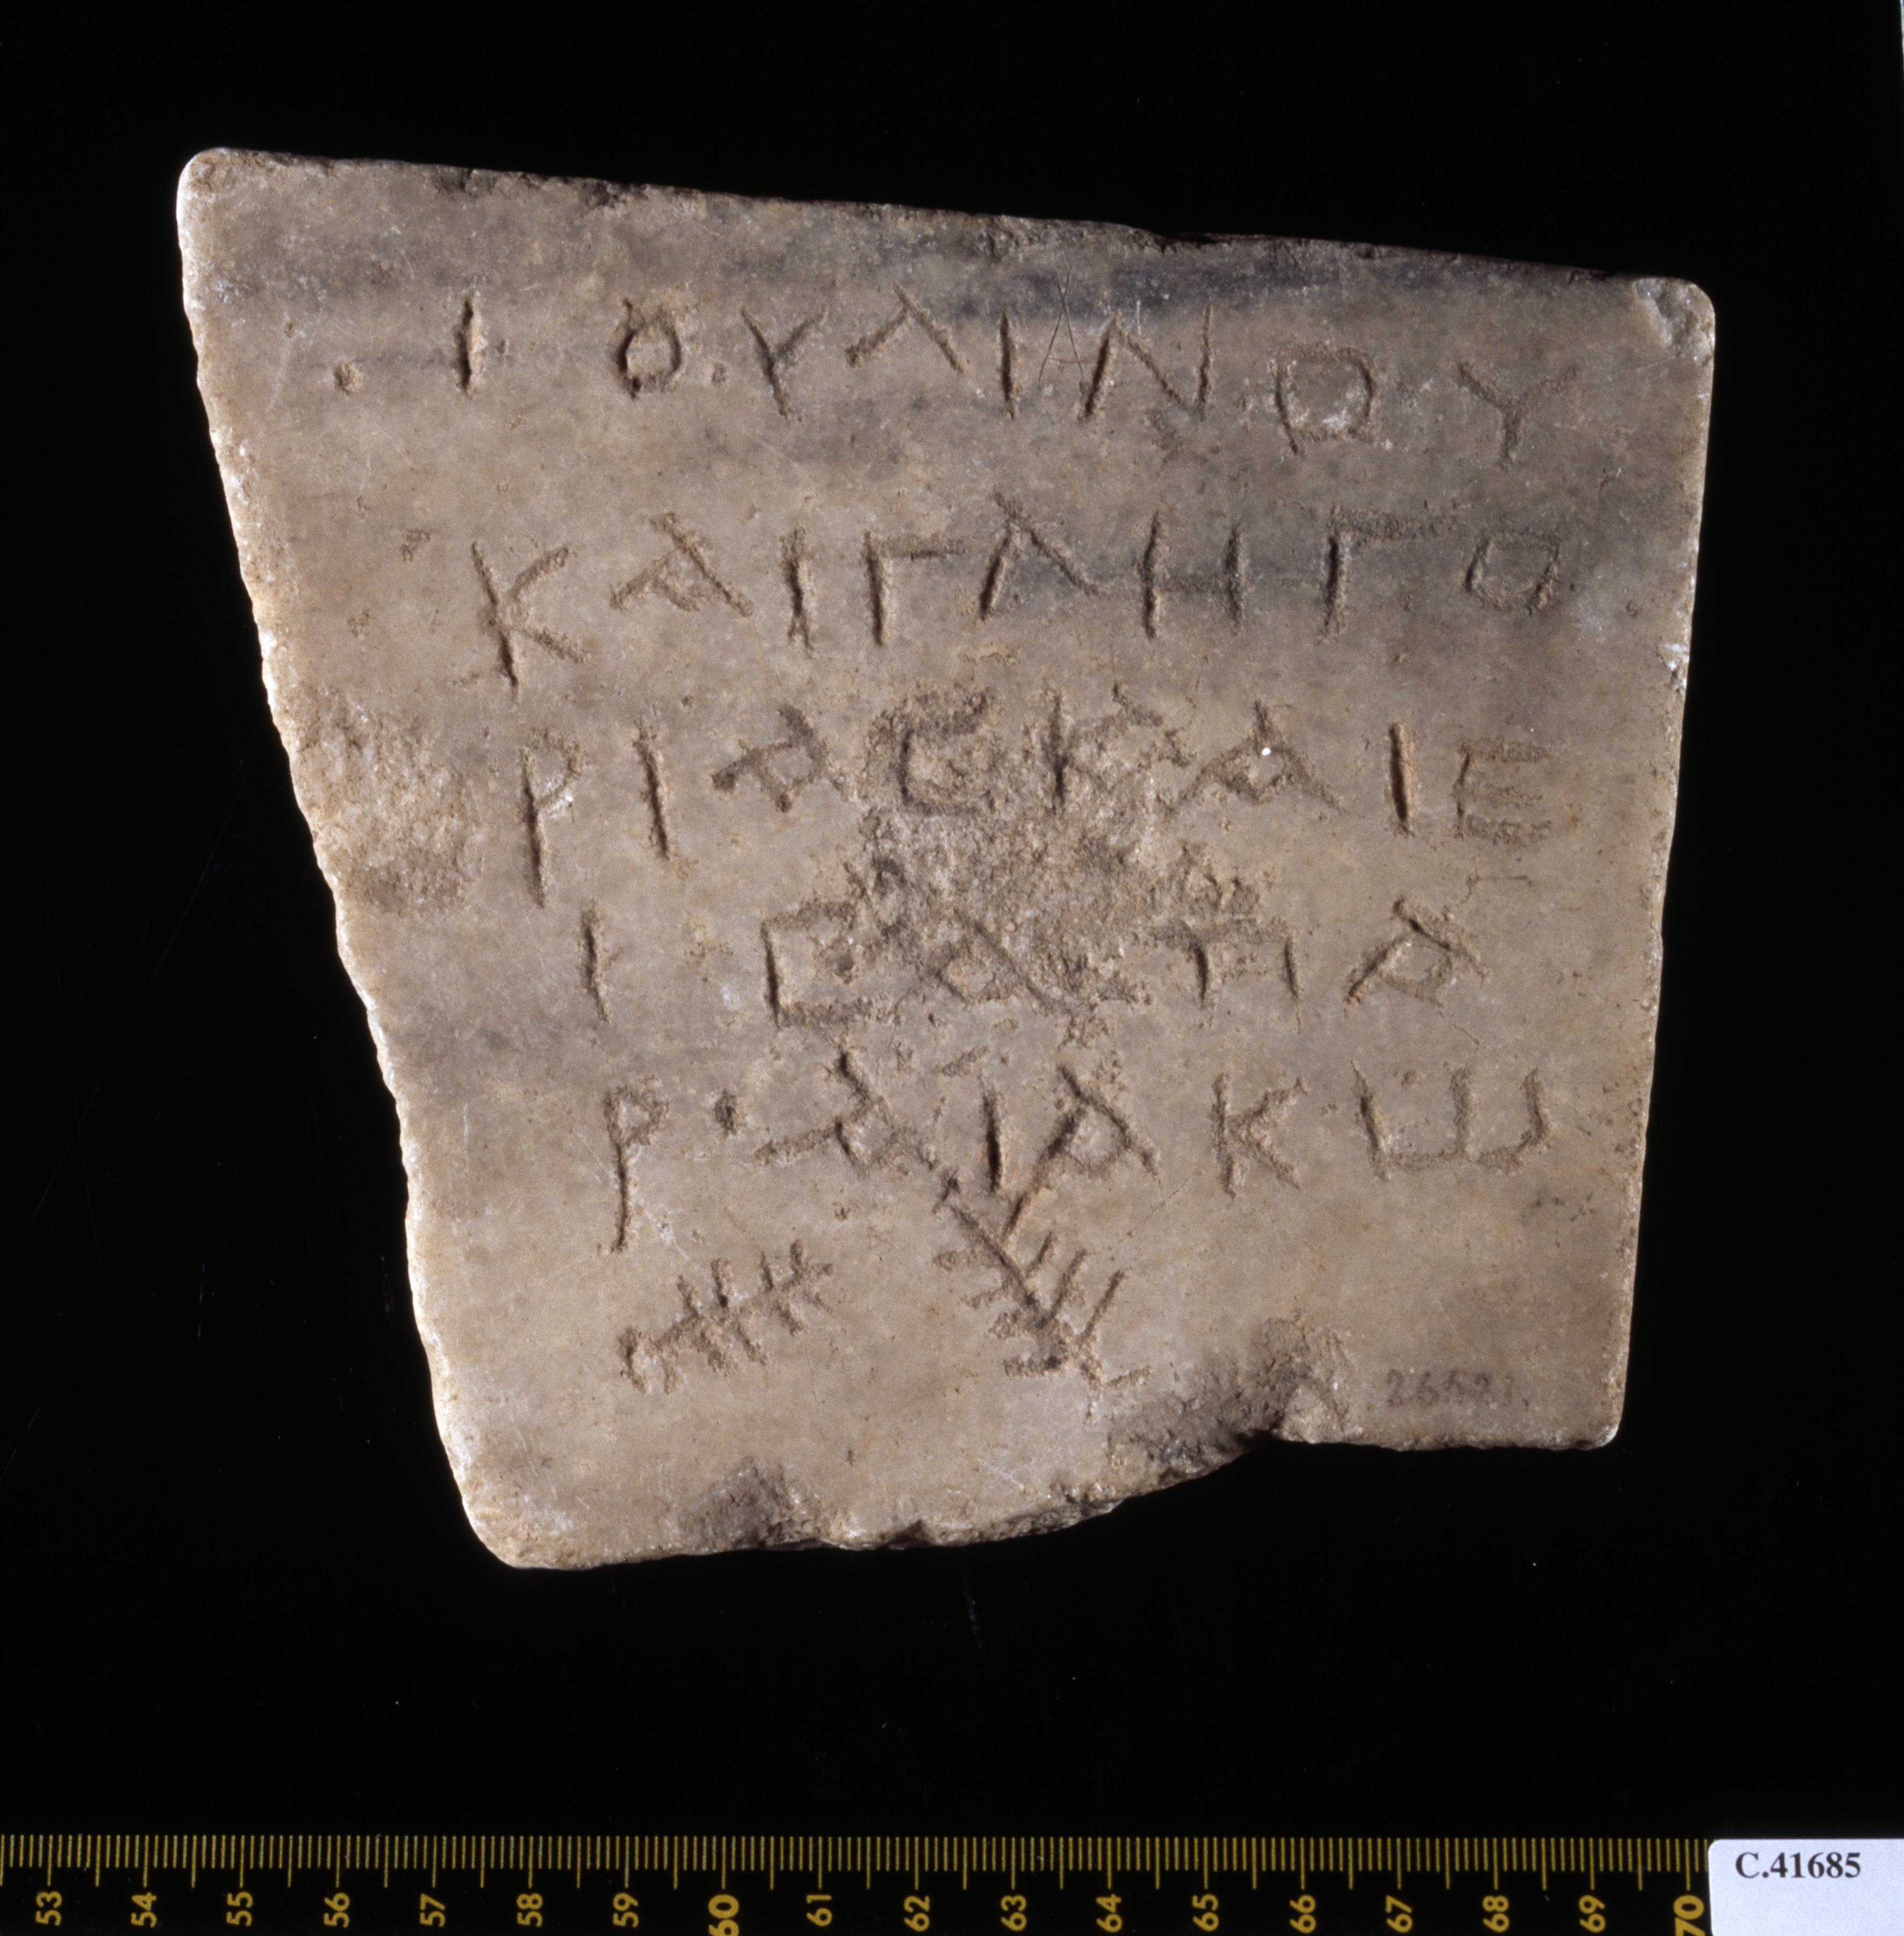 · Ι Ο · Υ Λ Ι Ν Ο Υ
ΚΑΙΓΛΗΓΟ
ΡΙΑϹΚΑΙΕ
ΙϹΑΠΑ
Ρ · ΔΙΑΚω
53 54 55 56 57 58 59 60 61 62 63 64 65 66 67 68 69 70
C.41685